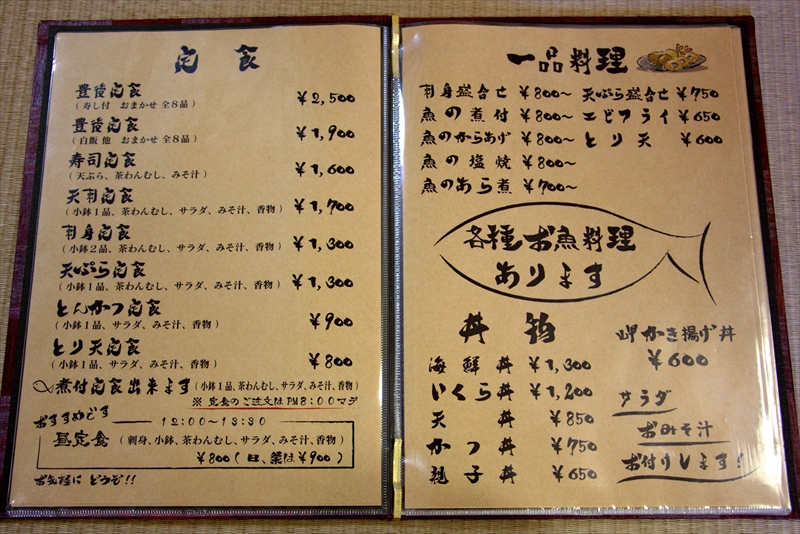 定食
豊後定食 ¥2,500
(寿し付 おまかせ 全8品)
豊後定食 ¥1,900
(白飯 他 おまかせ 全8品)
寿司定食 ¥1,600
(天ぷら、茶わんむし、みそ汁)
天刺定食 ¥1,700
(小鉢1品、茶わんむし、サラダ、みそ汁、香物)
刺身定食 ¥1,300
(小鉢2品、茶わんむし、サラダ、みそ汁、香物)
天ぷら定食 ¥1,300
(小鉢1品、茶わんむし、サラダ、みそ汁、香物)
とんかつ定食 ¥900
(小鉢1品、サラダ、みそ汁、香物)
とり天定食 ¥800
(小鉢1品、サラダ、みそ汁、香物)
煮付定食出来ます(小鉢1品、茶わんむし、サラダ、みそ汁、香物)
※ 定食のご注文はPM8:00マデ
おすすめです
12:00~13:30
昼定食 (刺身、小鉢、茶わんむし、サラダ、みそ汁、香物)
¥800(日、祭は¥900)
お気軽にどうぞ!!
一品料理
刺身盛合せ ¥800~ 天ぷら盛合せ ¥750
魚の煮付 ¥800~ エビフライ ¥650
魚のからあげ ¥800~ とり天 ¥600
魚の塩焼 ¥800~
魚のあら煮 ¥700~
各種お魚料理
あります
丼物
海鮮丼 ¥1,300
いくら丼 ¥1,200
天丼 ¥850
かつ丼 ¥750
親子丼 ¥650
岬かき揚げ丼
¥600
サラダ
おみそ汁
お付けします!